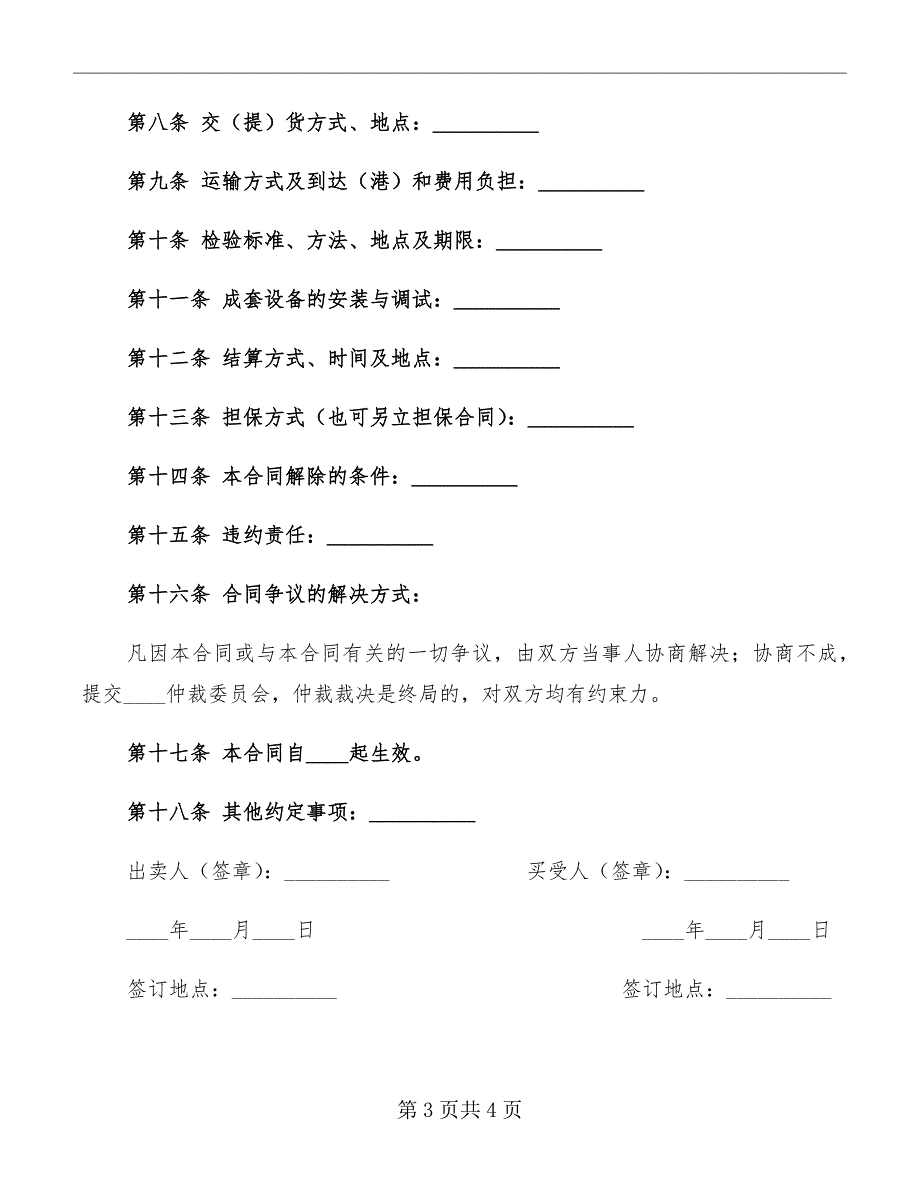 第八条 交（提）货方式、地点：__________
第九条 运输方式及到达（港）和费用负担：__________
第十条 检验标准、方法、地点及期限：__________
第十一条 成套设备的安装与调试：__________
第十二条 结算方式、时间及地点：__________
第十三条 担保方式（也可另立担保合同）：__________
第十四条 本合同解除的条件：__________
第十五条 违约责任：__________
第十六条 合同争议的解决方式：
凡因本合同或与本合同有关的一切争议，由双方当事人协商解决；协商不成，
提交____仲裁委员会，仲裁裁决是终局的，对双方均有约束力。
第十七条 本合同自____起生效。
第十八条 其他约定事项：__________
出卖人（签章）：__________ 买受人（签章）：__________
____年____月____日 ____年____月____日
签订地点：__________ 签订地点：__________
第 3 页共 4 页